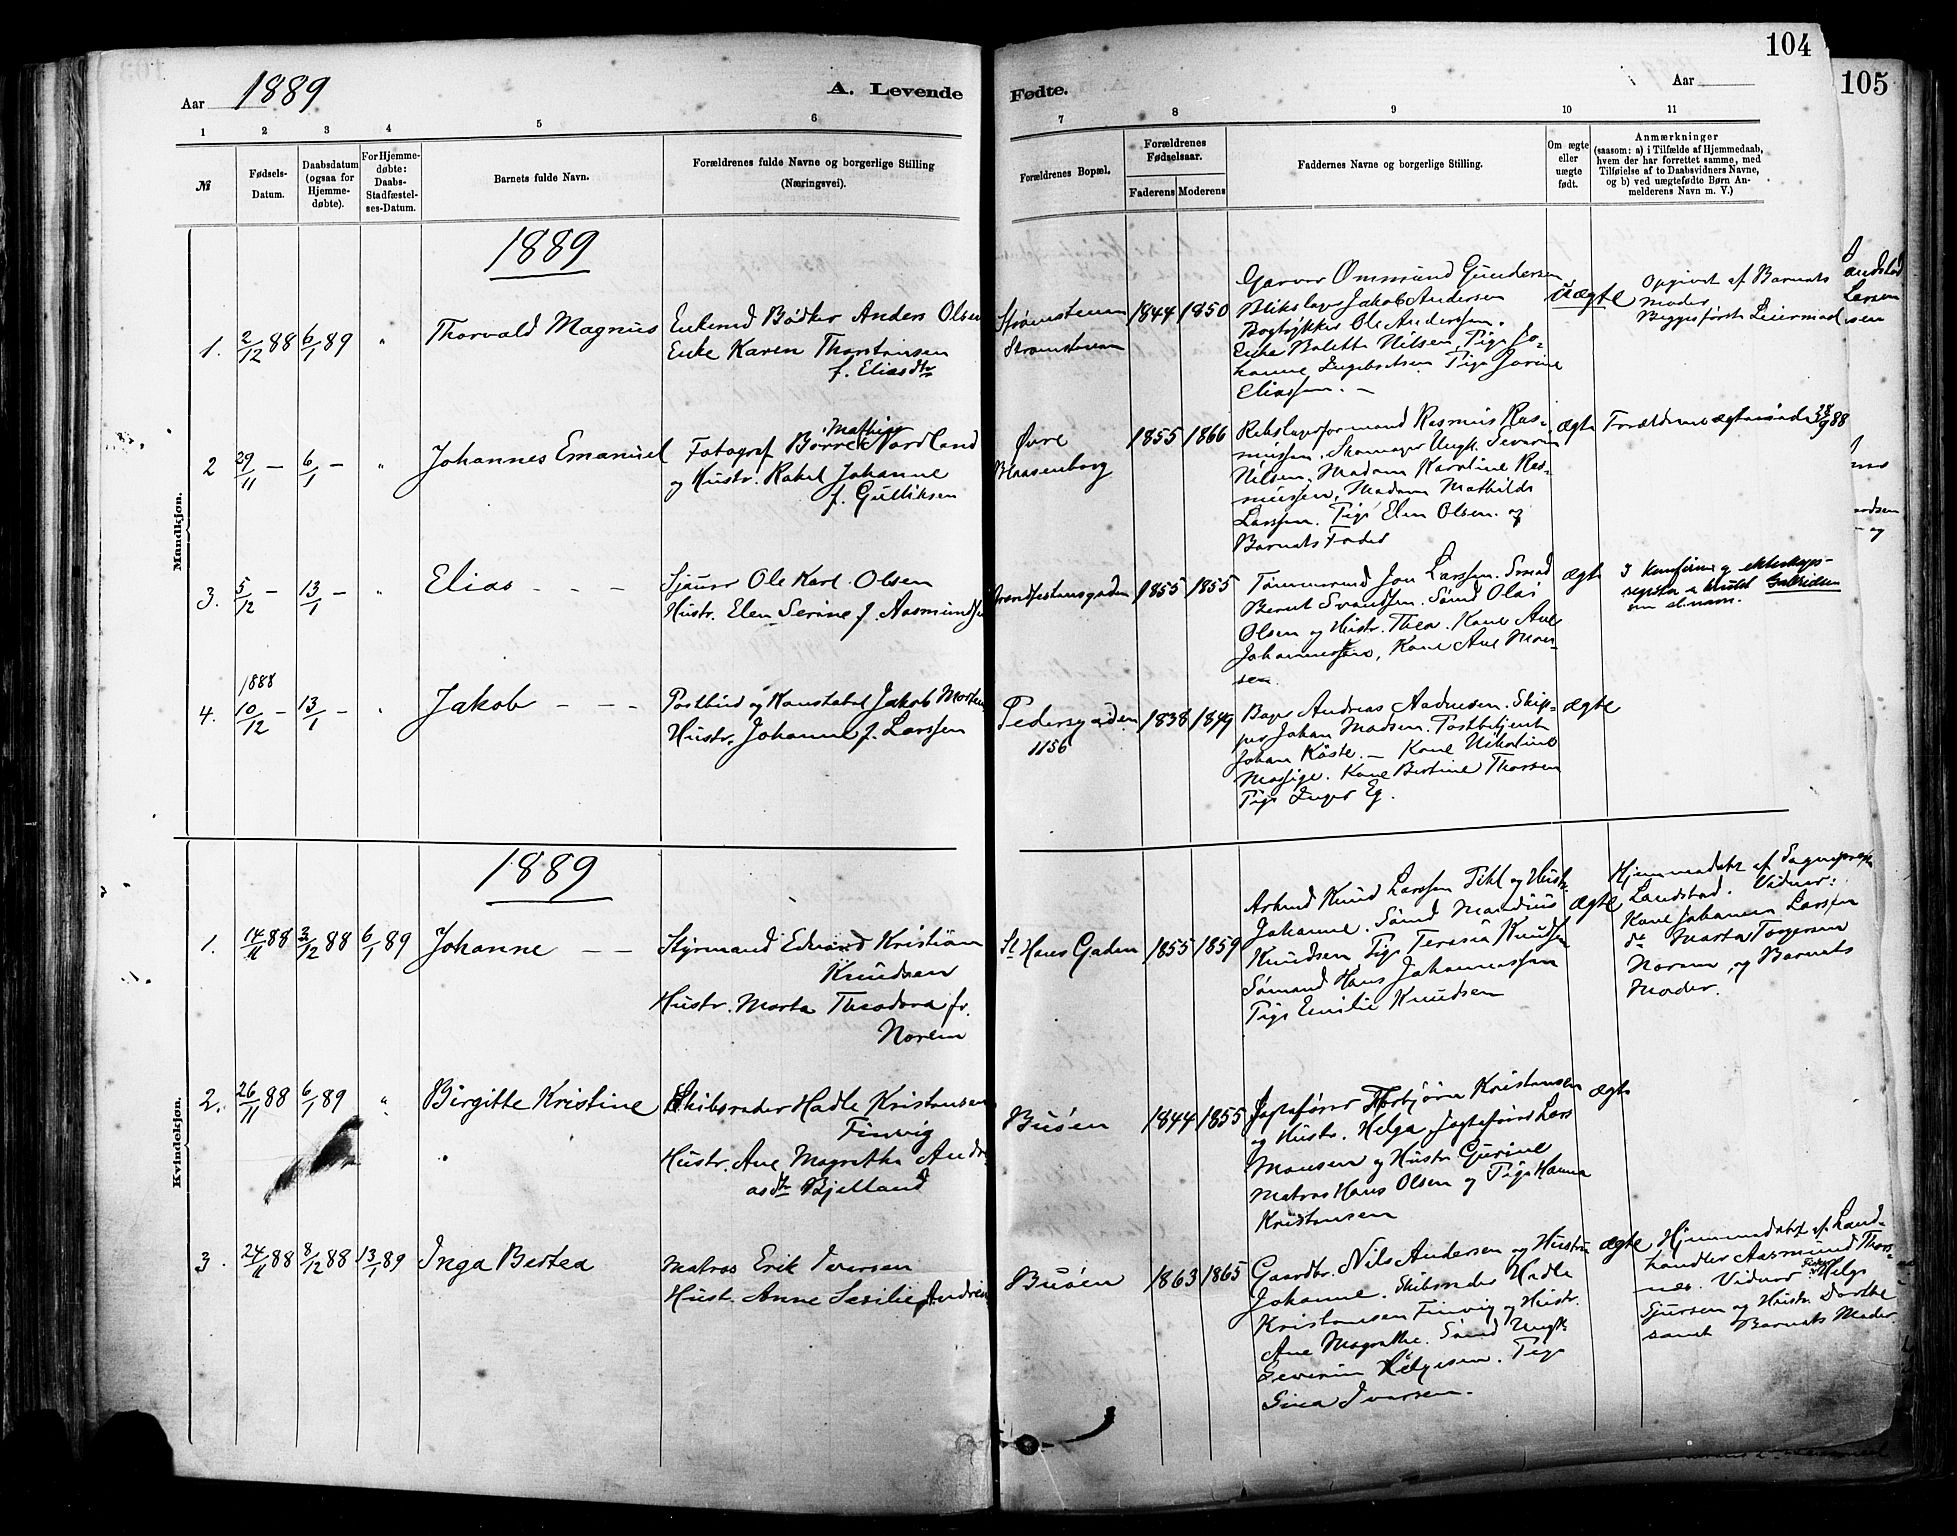 104
105
Aar 1889
A. Levende Fødte.
Aar
1 2 3 4 5 6 7 8 9 10 11
№
Fødsels-Datum.
Daabsdatum (ogsaa for Hjemme-døbte).
For Hjemme-døbte: Daabs-Stadfæstel-ses-Datum.
Barnets fulde Navn.
Forældrenes fulde Navne og borgerlige Stilling
(Næringsvei).
Forældrenes Bopæl.
Forældrenes Fødselsaar.
Faderens Moderens
Faddernes Navne og borgerlige Stilling.
Om ægte eller uægte født.
Anmærkninger
(saasom: a) i Tilfælde af Hjemmedaab,
hvem der har forrettet samme, med
Tilføielse af to Daabsvidners Navne,
og b) ved uægtefødte Børn An-
melderens Navn m. V.)
Mandkjøn.
1889
1. 2/12 88 6/1 89 " Thorvald Magnus
Enkemd Bødker Anders Olsen
Enke Karen Thorstensen
f. Eliasdtr
Strømsteen
Strømsteen
1844 1850
Garver Ommund Gundersen
Blikslager Jakob Andersen
Bogtrykker Ole Anderssen.
Enke Bolette Nilsen, Pige Jo-
hanne Ingebretsen. Pige Jorine
Eliassen. —
uægte
Opgivet af Barnets
Moder
Begges første Leiermaal
2 29/11 — 6/1 — " Johannes Emanuel
Fotograf Børre Mathias Nordland
og Hustr. Rakel Johanne
f. Gulliksen
Øvre
Blaasenborg
1855 1866
Rebslagerformand Rasmus Ras-
mussen. Skomager Ungk. Severin
Nilsen. Madam Karoline Ras-
mussen, Madam Mathilde
Larssen. Pige Elen Olsen. og
Barnets Fader
ægte
Forældrene ægteviede 28/9 88
3. 5/12 — 13/1 — " Elias — —
Sjauer Ole Karl Olsen
Hustr. Elen Serine f. Aasmundsen
Strandfestansgaden
1855 1855
Tømmermd Jon Larssen. Smed
Bernt Svendsen. Sømd Olas
Olsen og Hustr. Thea. Kone Ane
Johannessen, Kone Ane Mon-
sen.
ægte
I konfirm. og ekteskaps-
register er brukt Gabrielsen
som et.navn.
4. 1888 10/12 — 13/1 — " Jakob — — —
Postbud og Konstabel Jakob Morten
Hustr. Johanne f. Larssen
Pedersgaden
1156
1838 1849
Bager Andreas Aadnesen. Skip-
per Johan Madsen. Postbetjent
Johan Køste. — Kone Nikoline
Mossige. Kone Bertine Thorsen
Pige Inger Eg.
ægte
Kvindekjøn.
1889
1. 14/11 88 3/12 88 6/1 89 Johanne — —
Styrmand Edvard Kristian
Knudsen
Hustr. Marta Theodora f.
Norem
St Hans Gaden
1855 1859
Arbmd Knud Larssen Tihl og Hustr.
Johanne. Sømd Mandius
Knudsen Pige Teresia Knudsen
Sømand Hans Johannessen
Pige Emilie Knudsen
ægte
Hjemmedøbt af Sognepresten
Landstad. Vidner:
Kone Johanne Larsen
do Marta Torgersen
Norem, og Barnets
Moder.
2. 26/11 88 6/1 89 " Birgitte Kristine
Skibsreder Hadle Kristensen
Finvig
Hustr. Ane Magrethe Andre-
asdtr Bjelland
Buøen
1844 1855
Jagtefører Thorbjørn Kristensen
og Hustr. Helga. Jagtefører Lars
Monsen og Hustr Gurine
Matros Hans Olsen og Pige Hanna
Kristensen
ægte
3. 24/11 88 8/12 88 13/1 89 Inga Bertea
Matros Erik Iversen
Hust. Anne Serilie Andreas
Buøen
1863 1865
Gaardbr. Nils Andersen og Hustru
Johanne. Skibsreder Hadle
Kristensen Finvig og Hustr.
Ane Magrethe. Sømd Ungk
Severin Helgesen. Pige
Gina Iversen.
ægte
Hjemmedøbt af Land-
handler Aasmund Thors-
nes. Vidner Fisker Helge
Sjursen og Hustr. Dorthe
samt Barnets Moder